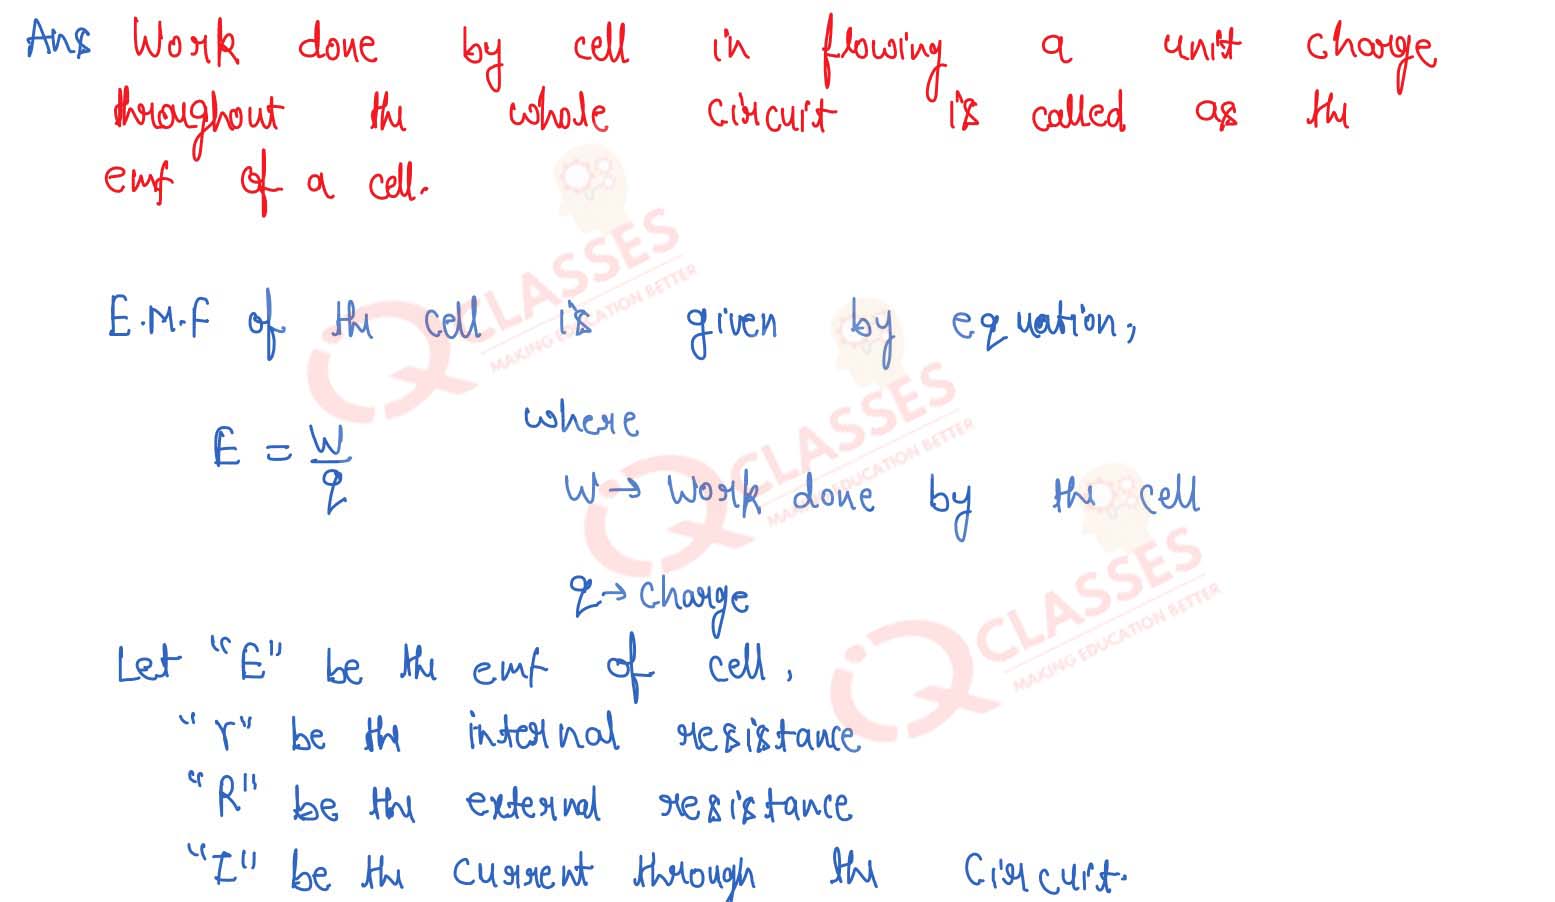 Ans Work done by cell in flowing a unit charge
throughout the whole circuit is called as the
emf of a cell.
E.M.F of the cell is given by equation,
E = W/q
where
W → Work done by the cell
q → charge
Let "E" be the emf of cell,
"r" be the internal resistance
"R" be the external resistance
"I" be the current through the circuit.
iQ CLASSES
MAKING EDUCATION BETTER
iQ CLASSES
MAKING EDUCATION BETTER
iQ CLASSES
MAKING EDUCATION BETTER